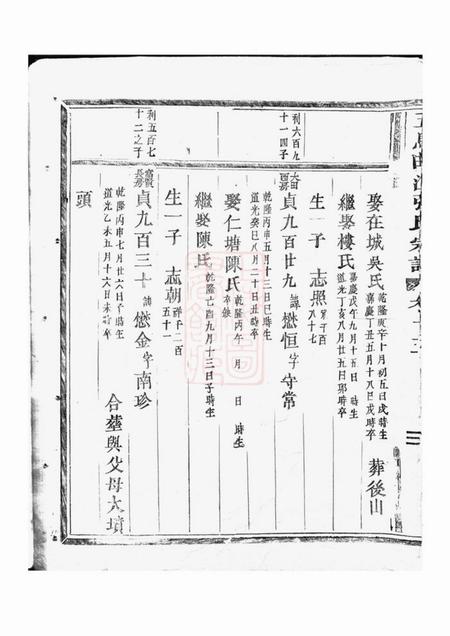 娶在城吳氏 乾隆庚午十月初五日戌時生 嘉慶丁丑五月十八戌時卒 葬後山
繼娶樓氏 嘉慶戊午九月十五日 時生 道光丁亥八月廿五日卯時卒
生一子 志照 千百八十七
利六百九十一四子
貞九百廿九 諱懋恒字守常
乾隆丙申五月十三日巳時生
道光癸巳八月二十日丑時卒
娶仁塘陳氏 乾隆丙午 月 日 時生 卒缺
繼娶陳氏 乾隆己酉九月十三日子時生
生一子 志朝 千二百五十一
利五百七十二之子
長房
貞九百三十 諱懋金字南珍
乾隆丙申七月廿六日午時生
道光乙未五月十六日未時卒 合塟與父母大墳
頭